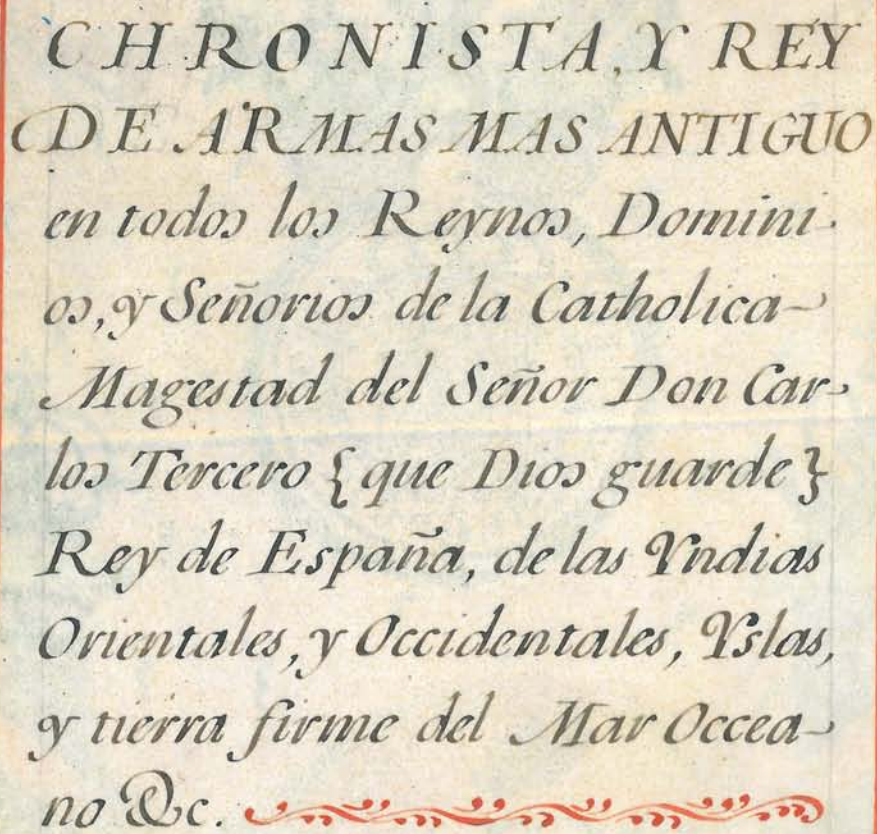 CHRONISTA, Y REY
DE ARMAS MAS ANTIGUO
en todos los Reynos, Domini-
os, y Señorios de la Catholica
Magestad del Señor Don Car-
los Tercero {que Dios guarde}
Rey de España, de las Yndias
Orientales, y Occidentales, Yslas,
y tierra firme del Mar Occea-
no &c.